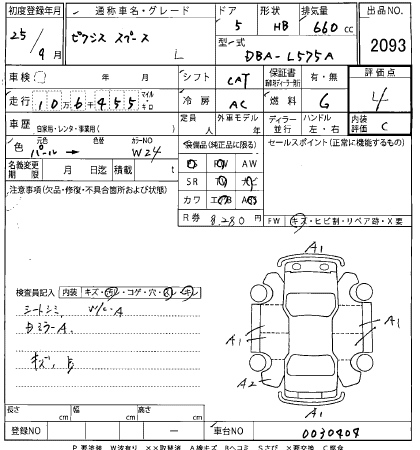 初度登録年月 通称車名・グレード ドア 形状 排気量 出品NO.
25/9月 L 5 HB 660 cc 2093
型式 DBA-L575A
車検 年 月 シフト CAT 保証書 有・無 評価点
走行 10万6千455 マイル キロ 冷房 AC 燃料 G 4
車歴 自家用・レンタ・事業用( ) 定員 人 外車モデル 年 ディラー 並行 ハンドル 左・右 内装評価 C
色 元色 パール → 色替 カラーNO W24 装備品(純正品に限る) セールスポイント(正常に機能するもの)
PS PW AW
名義変更期限 月 日迄 積載 t SR TV ナビ
注意事項(欠品・修復・不具合箇所および状態) カワ エアB ABS
R券 8,280円 FW キズ・ヒビ割・リペア跡・X要
A1
検査員記入 内装 キズ・汚レ・コゲ・穴・スレ・キレ
シートシミ W/C・A
カミラーA
A1 A1 A1
A2
A1
長さ cm 幅 cm 高さ cm
登録NO － 車台NO 0030404
P 要塗装 W波有り XX取替済 A線キズ Bヘコミ Sさび X要交換 C腐食